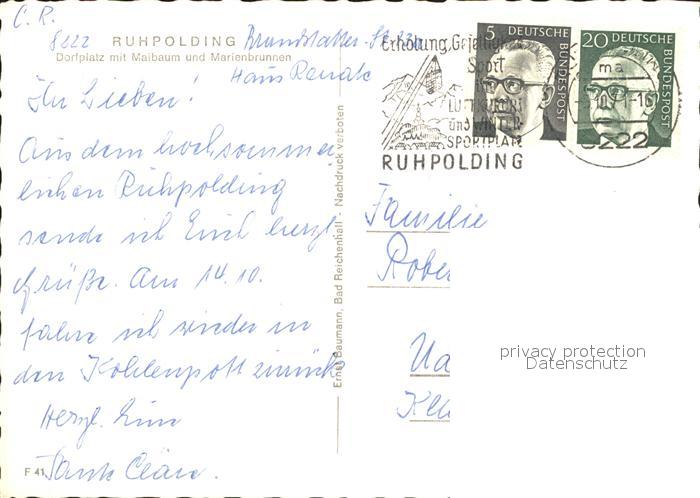 C. R.
8222 RUHPOLDING
Dorfplatz mit Maibaum und Marienbrunnen
Haus Renate
Ihr Lieben!
Aus dem hochsommer
lichen Ruhpolding
sende ich Euch herzl
Grüße. Am 14.10.
fahre ich wieder in
den Kohlenpott zurück
Herzl.
F 41
Ernst Baumann, Bad Reichenhall - Nachdruck verboten
Erholung,
Sport
im
LUFTKURORT
und WINTER-
SPORTPLATZ
RUHPOLDING
5 DEUTSCHE
BUNDESPOST
20 DEUTSCHE
BUNDESPOST
ma
8222
Familie
Rober
privacy protection
Datenschutz